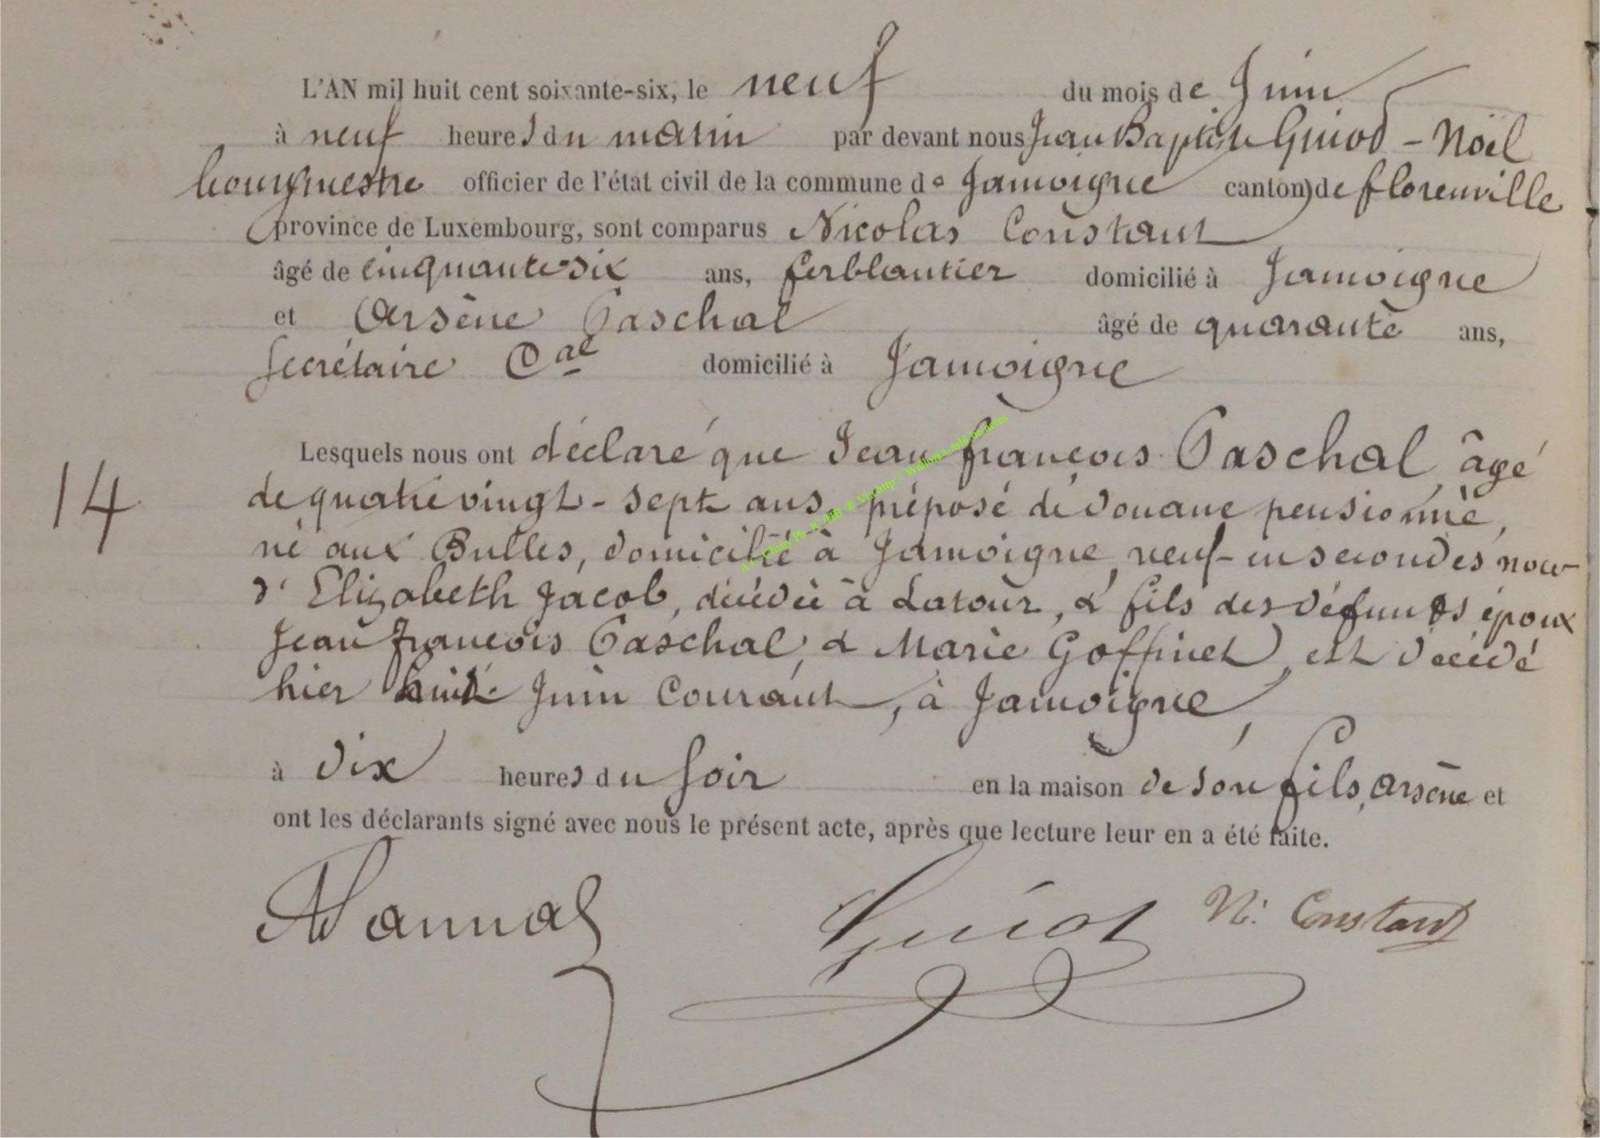 L'AN mil huit cent soixante-six, le neuf du mois de Juin
à neuf heures du matin par devant nous Jean Baptiste Guiot - Noël
bourgmestre officier de l'état civil de la commune de Jamoigne canton de florenville
province de Luxembourg, sont comparus Nicolas Constant
âgé de cinquante-six ans, ferblantier domicilié à Jamoigne
et Arsène Paschal âgé de quarante ans,
Secrétaire Cal domicilié à Jamoigne
Lesquels nous ont déclaré que Jean françois Paschal, âgé
14
de quatre vingt-sept ans, préposé de douane pensionné,
né aux Bulles, domicilié à Jamoigne, veuf en secondes noces
d'Elizabeth Jacob, décédée à Latour, & fils des défunts époux
Jean françois Paschal, & Marie Goffinet, est décédé
hier huit Juin Courant, à Jamoigne,
à dix heures du soir en la maison de son fils, Arsène et
ont les déclarants signé avec nous le présent acte, après que lecture leur en a été faite.
Guiot N. Constant